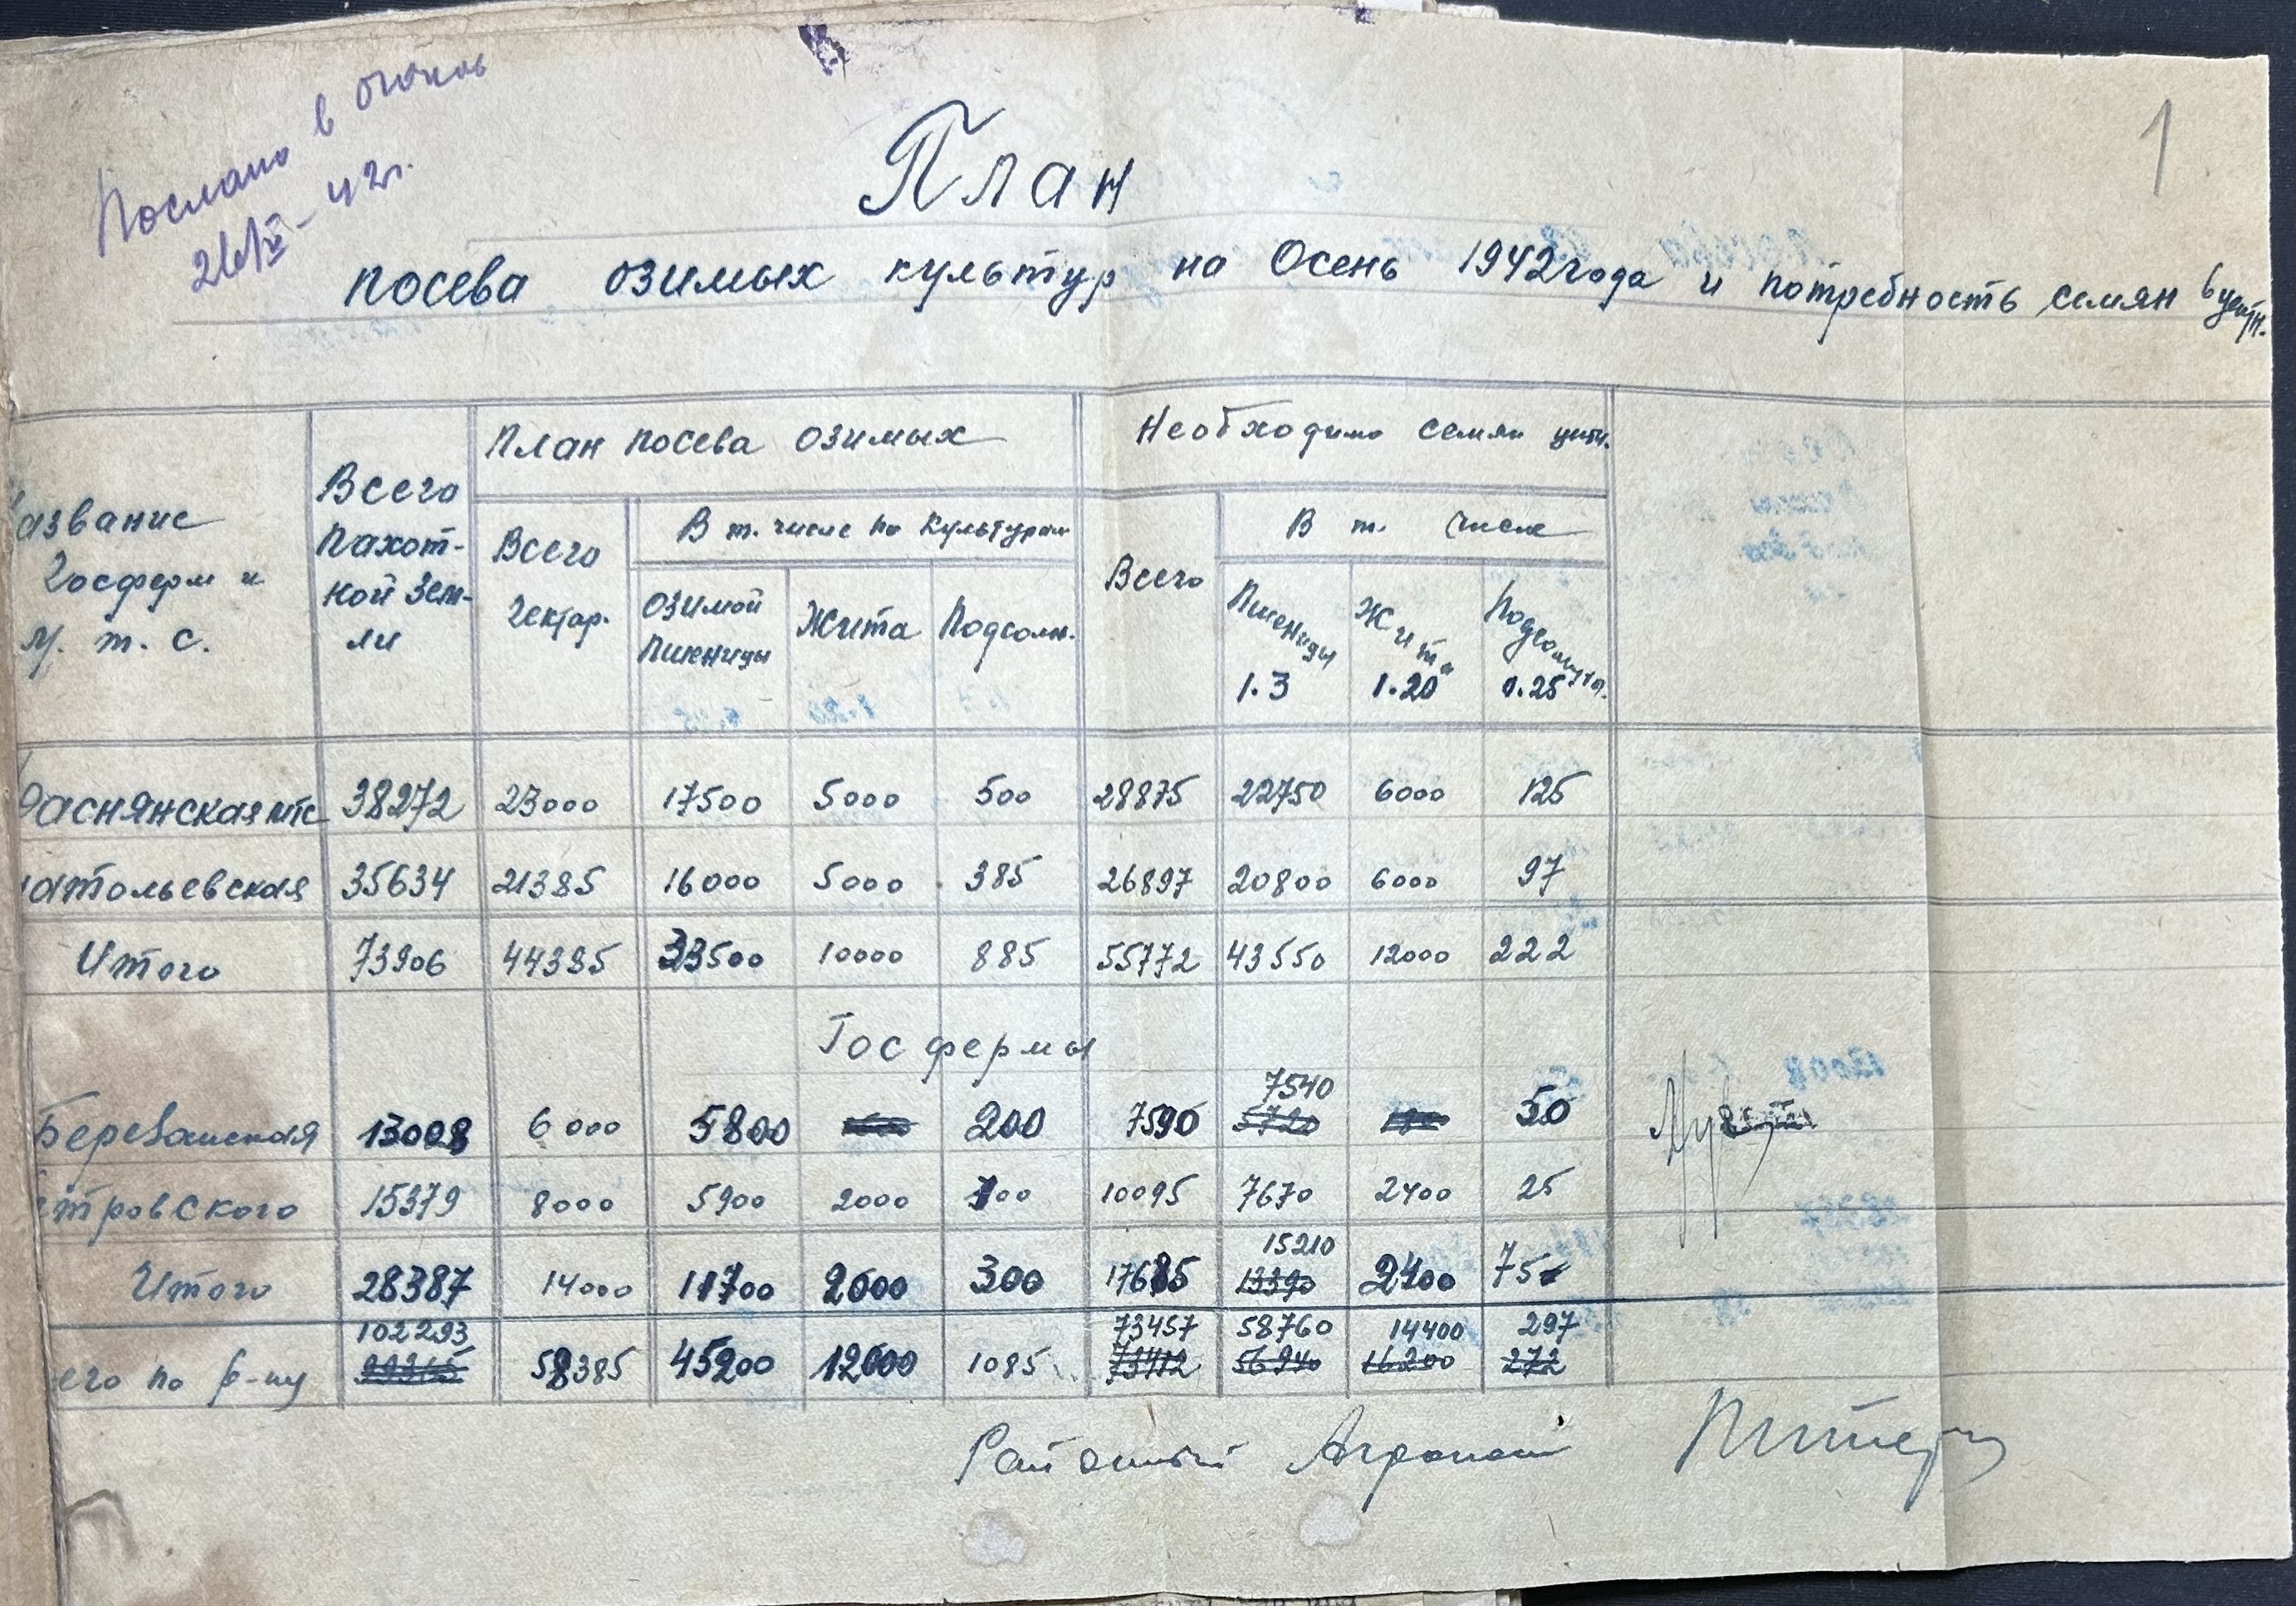 Послано в
26/V-42г.
1
План
посева озимых культур на Осень 1942 года и потребность семян в центн.
азвание
Госферм и
М. т. с.
Всего
пахот-
ной зем-
ли
План посева озимых
Всего
гектар.
В т. числе по культурам
Озимой
Пшеницы
Жита
Подсолн.
Необходимо семян цнт.
Всего
В т. числе
Пшеницы
1.3
Жита
1.20
Подсолнуха.
0.25
раснянская мтс 38272 23000 17500 5000 500 28875 22750 6000 125
натольевская 35634 21385 16000 5000 385 26897 20800 6000 97
Итого 73906 44385 33500 10000 885 55772 43550 12000 222
Госфермы
7540
Березанская 13008 6000 5800 200 7590 5720 50
етровского 15379 8000 5900 2000 100 10095 7670 2400 25
15210
Итого 28387 14000 11700 2000 300 17685 13390 2400 75
102293 73457 58760 14400 297
его по р-ну 58385 45200 12000 1085 73412 56940 16200 272
Районный Агроном